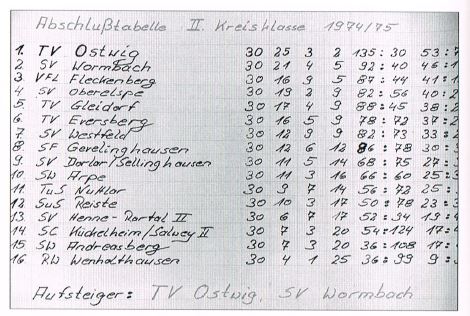 Abschlußtabelle II. Kreisklasse 1974/75
1. TV Ostwig 30 25 3 2 135:30 53:7
2 SV Wormbach 30 21 4 5 92:40 46:1
3 VFL Fleckenberg 30 16 9 5 87:44 41:1
4 SV Oberelspe 30 19 2 9 82:56 40:2
5 TV Gleidorf 30 17 4 9 88:45 38:2
6 TV Eversberg 30 16 5 9 78:72 37:2
7 SV Westfeld 30 12 9 9 82:73 33:2
8 SF Gevelinghausen 30 12 6 12 86:78 30:3
9 SV Dorlar/Sellinghausen 30 11 5 14 68:75 27:3
10 SW Arpe 30 11 3 16 66:60 25:3
11 TuS Nuttlar 30 9 7 14 56:72 25:3
12 SuS Reiste 30 10 3 17 50:78 23:3
13 SV Henne-Rartal III 30 6 7 17 52:94 19:4
14 SC Kückelheim/Salwey II 30 7 3 20 54:124 17:4
15 SW Andreasberg 30 7 3 20 36:108 17:4
16 RW Wenholthausen 30 4 1 25 36:99 9:5
Aufsteiger: TV Ostwig, SV Wormbach